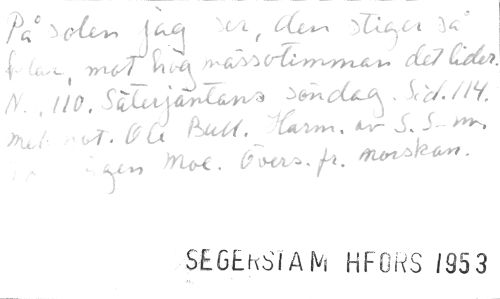 På solen jag ser, den stiger så
klar, mot högmässotimman det lider.
N. 110. Säterjäntans söndag. Sid. 114.
mel. not. Ole Bull. Harm. av S. S-m.
Moe. Övers. fr. norskan.
SEGERSTAM HFORS 1953